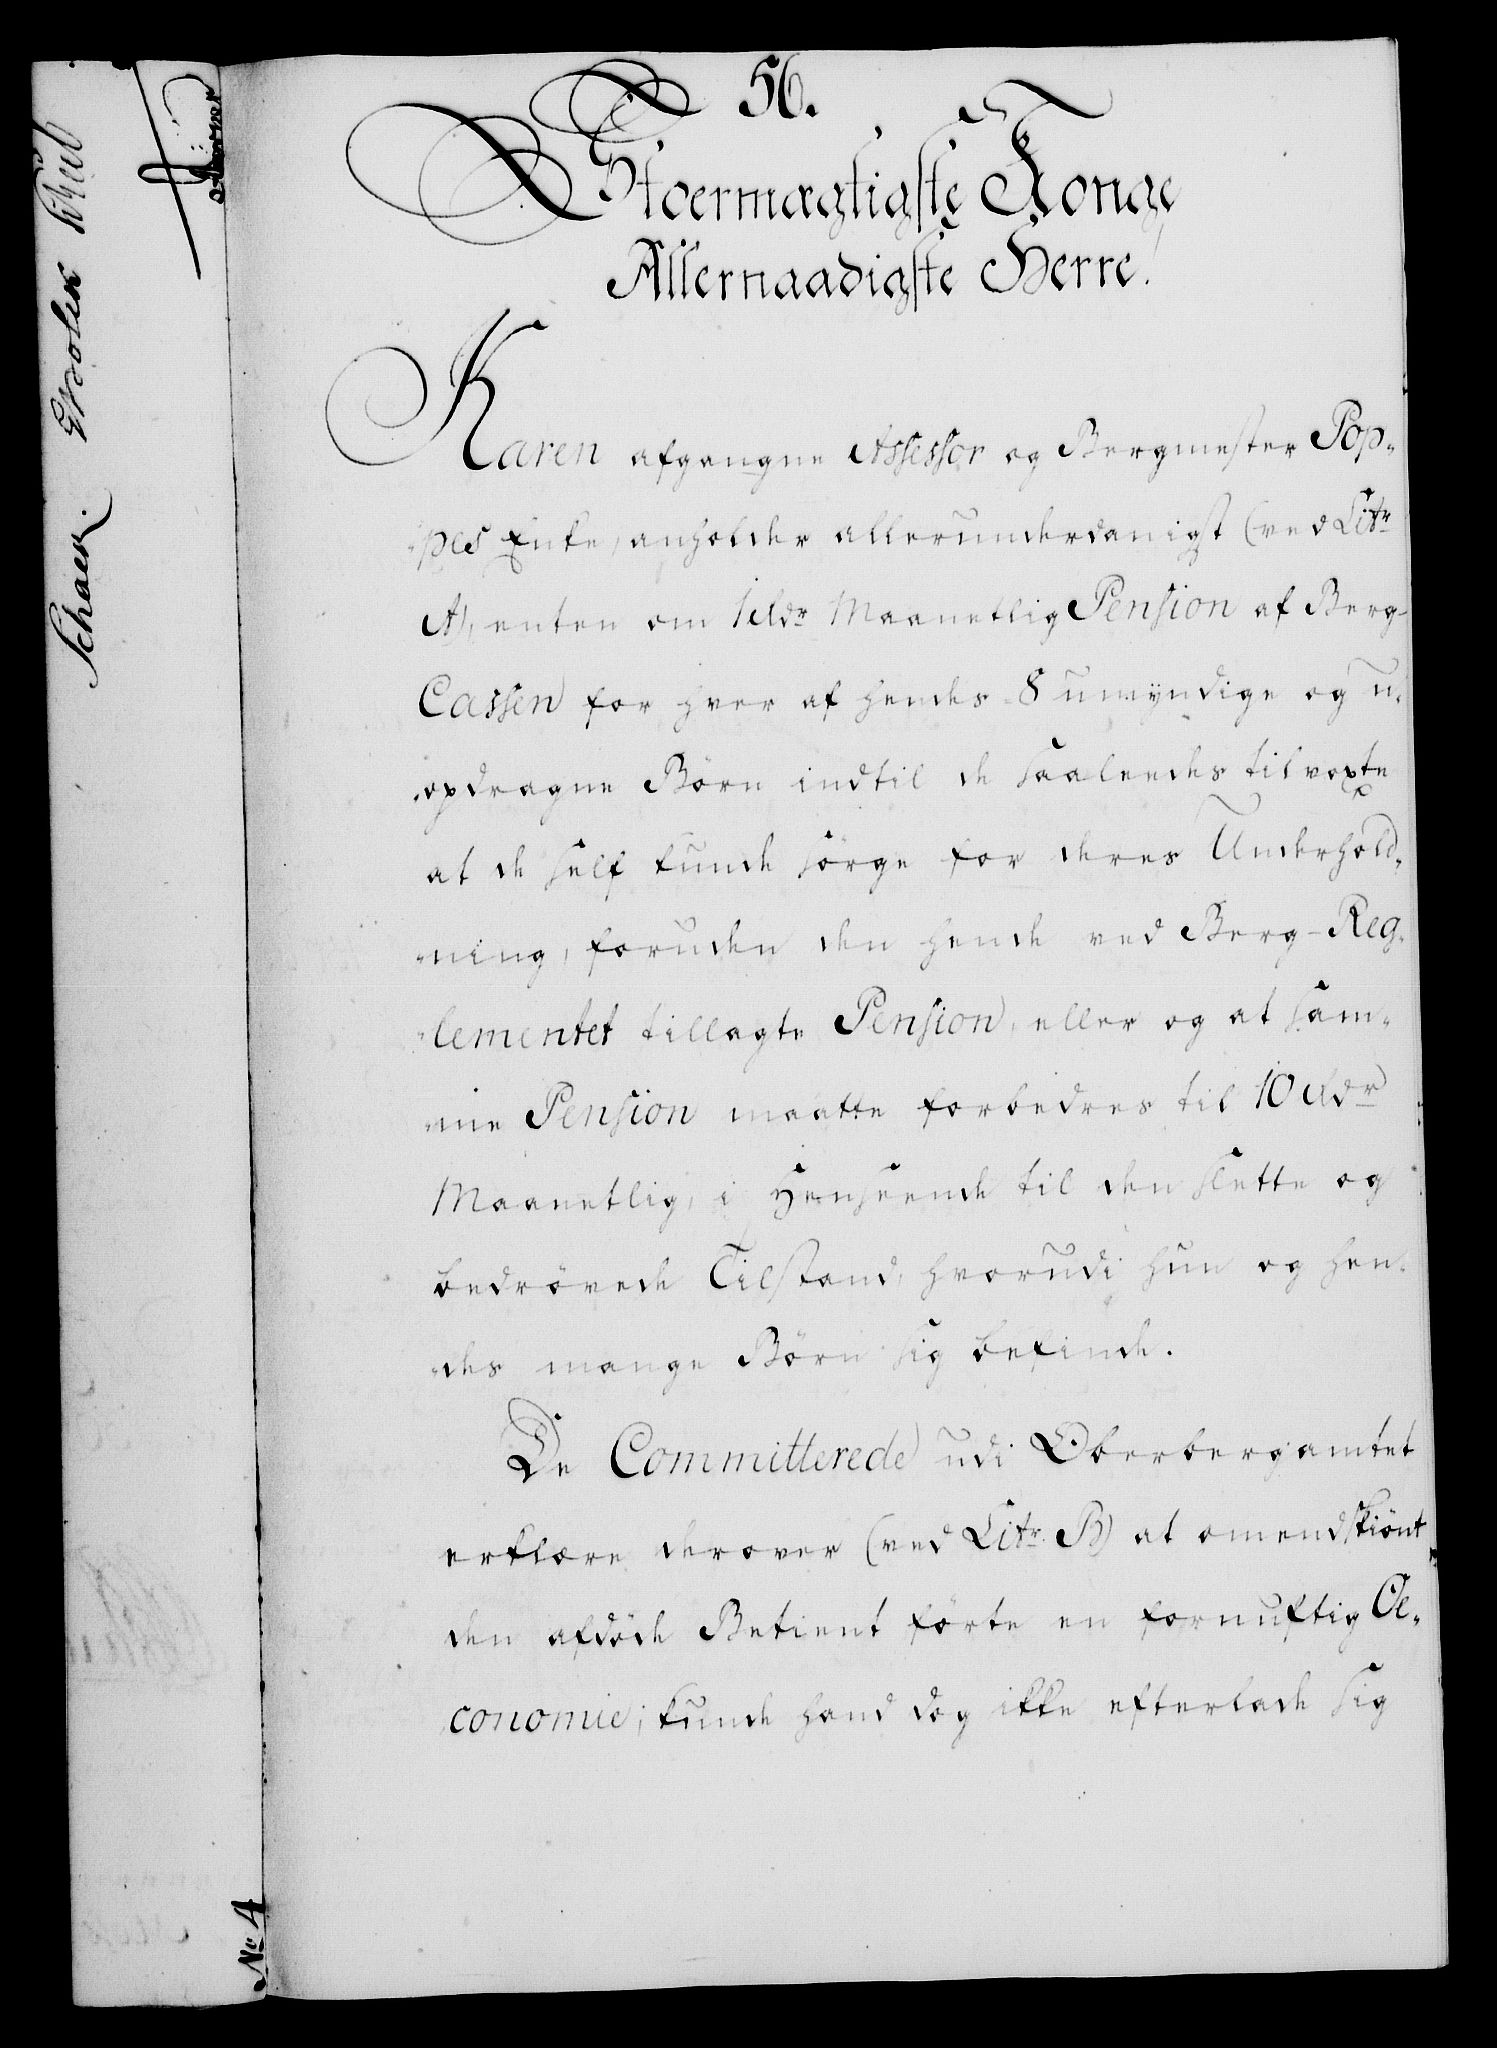 56.
Stoermægtigste Konge
Allernaadigste Herre!
Karen afgangne Assessor og Bergmester Pop-
pes Enke, anholder allerunderdanigst (ved Litr
A), enten om 1 Rdr Maanetlig Pension af Berg-
Cassen for hver af hendes 8 umyndige og u-
opdragne Börn indtil de saaledes tilvoxte
at de self kunde sörge for deres Underhold-
ning, foruden den hende ved Berg-Reg-
lementet tillagte Pension, eller og at sam-
me Pension maatte forbedres til 10 Rdr
Maanetlig, i Henseende til den slette og
bedrövede Tilstand, hvorudi hun og hen-
des mange Börn sig befinde.
De Committerede udi Oberbergamtet
erklære derover (ved Litr. B) at omendskiönt
den afdöde Betient förte en fornuftig Oe-
conomie; kunde hand dog ikke efterlade sig
Schaer.
No 4